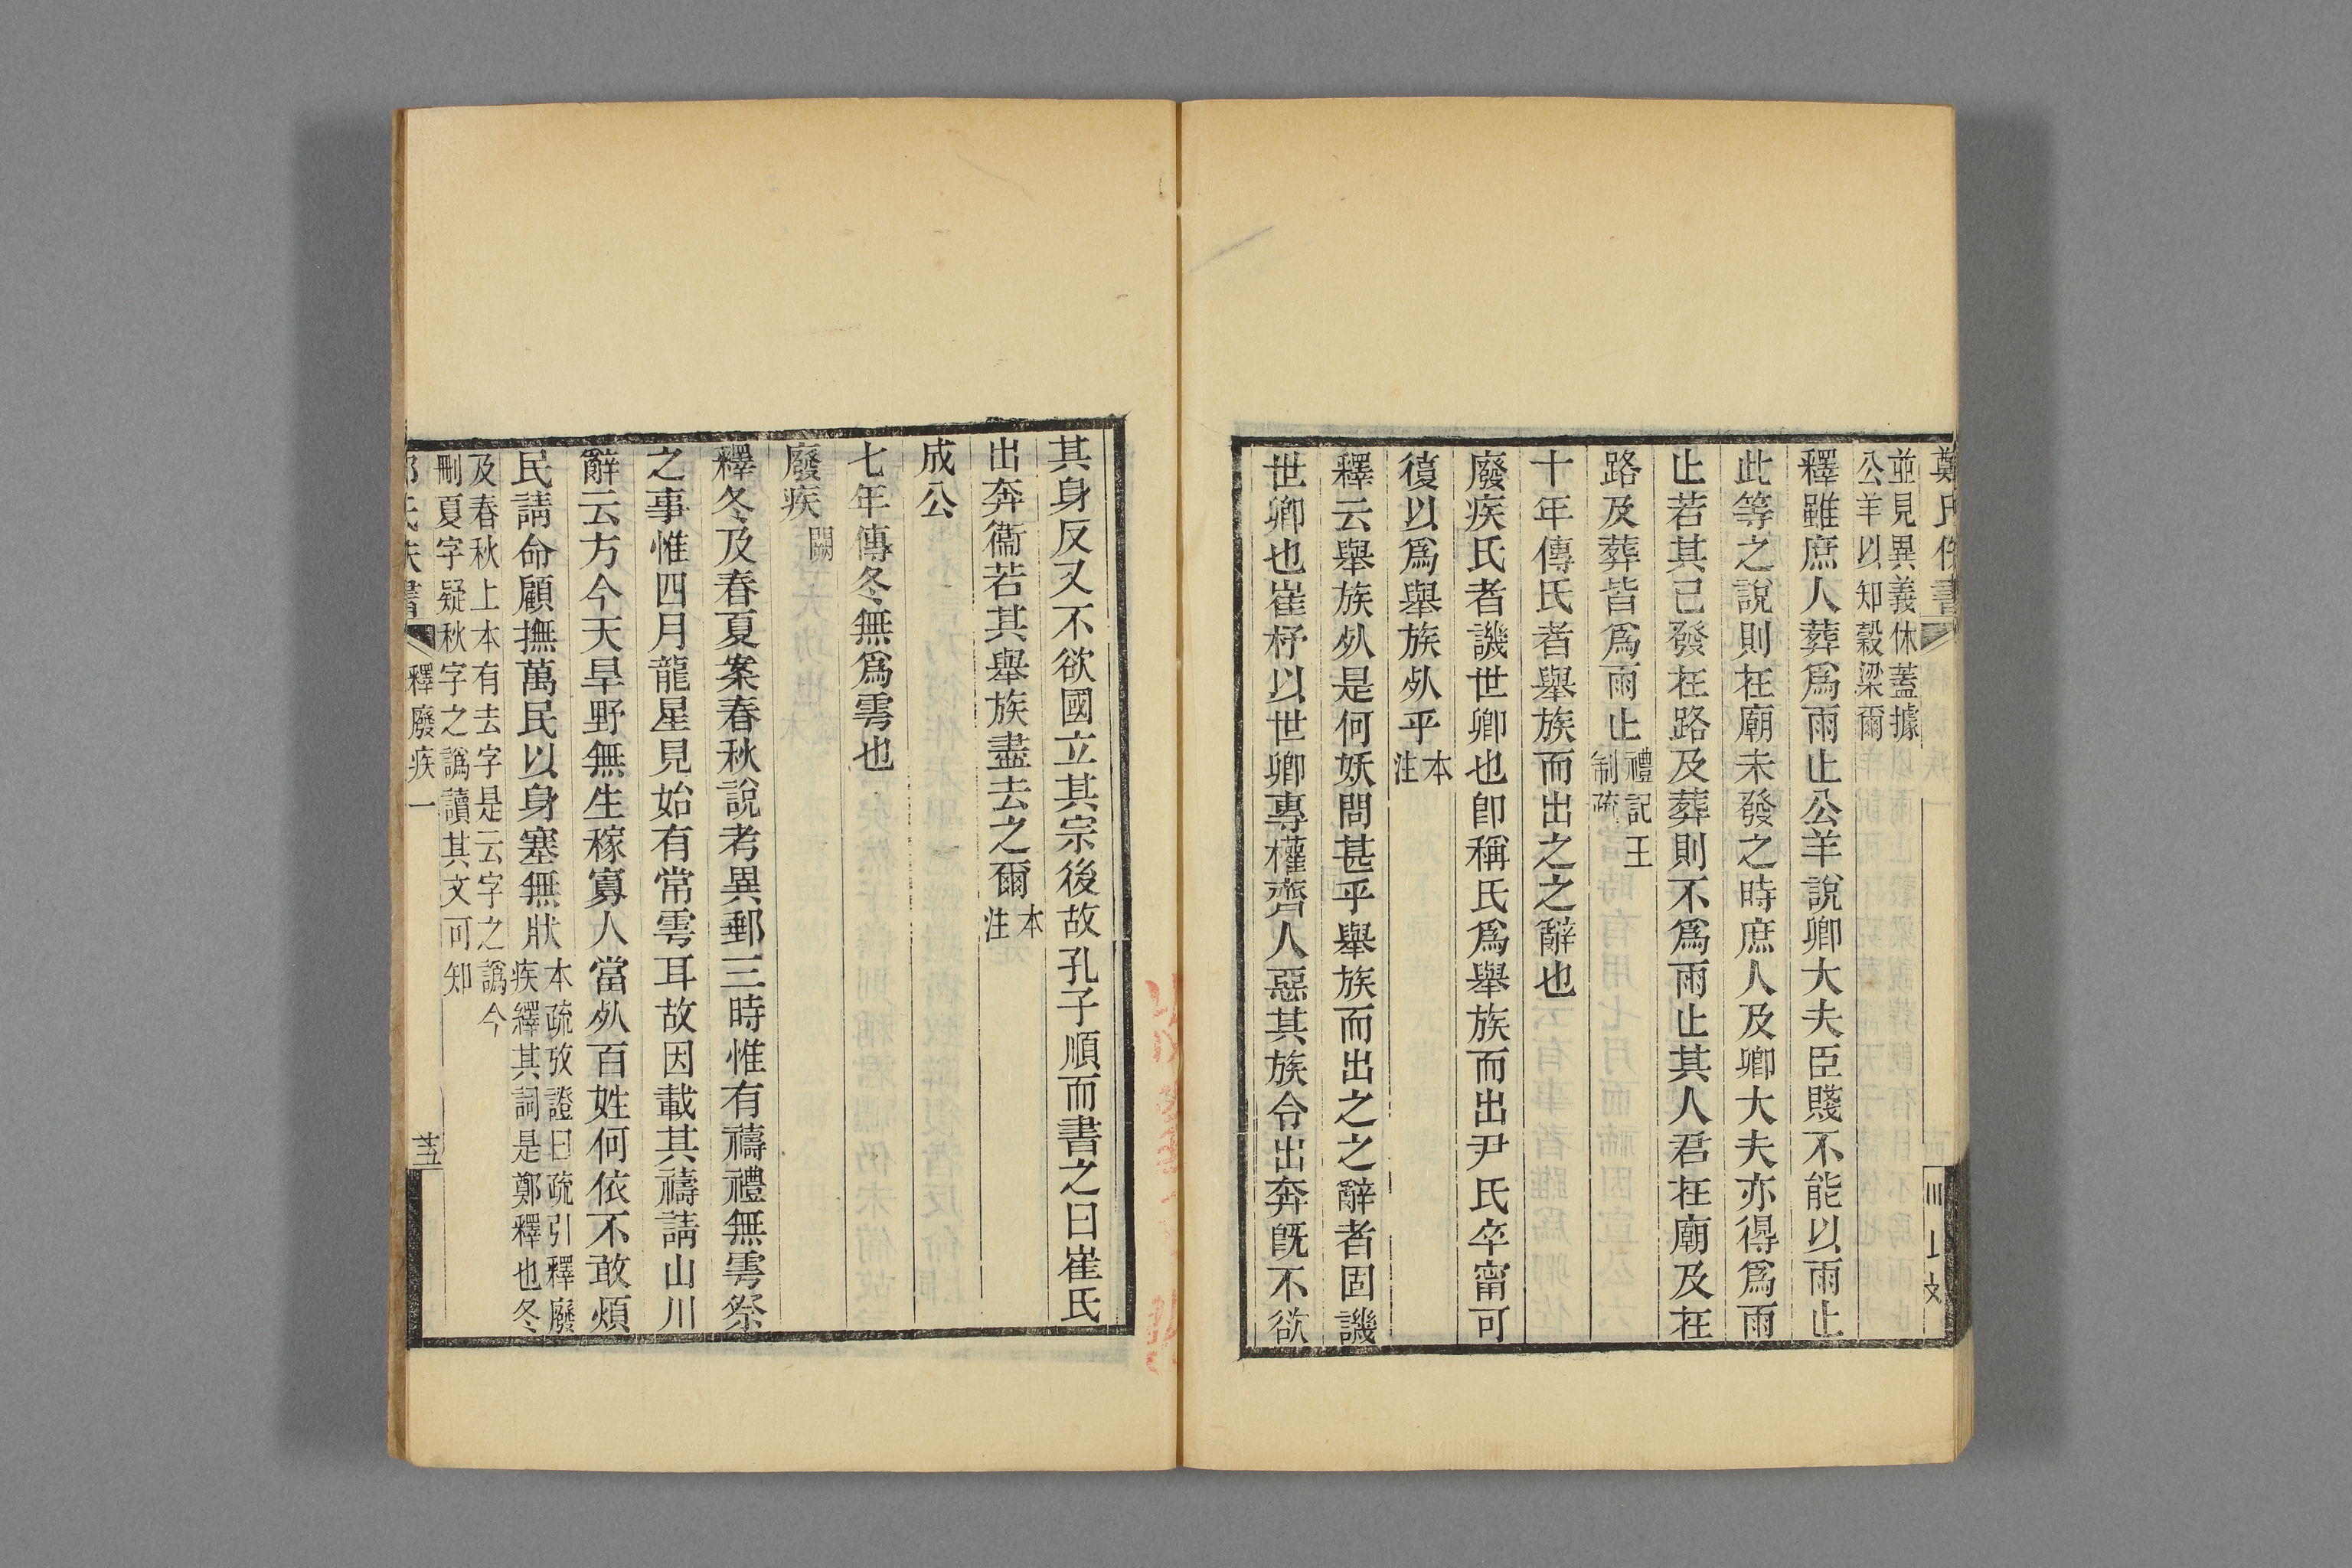 鄭氏佚書
並見異義休蓋據
公羊以知穀梁爾
釋雖庶人葬爲雨止公羊說卿大夫臣賤不能以雨止
此等之說則在廟未發之時庶人及卿大夫亦得爲雨
止若其已發在路及葬則不爲雨止其人君在廟及在
路及葬皆爲雨止禮記王制疏
十年傳氏者舉族而出之之辭也
廢疾氏者譏世卿也卽稱氏爲舉族而出尹氏卒甯可
復以爲舉族𣦸乎本注
釋云舉族𣦸是何妖問甚乎舉族而出之之辭者固譏
世卿也崔杼以世卿專權齊人惡其族令出奔旣不欲
其身反又不欲國立其宗後故孔子順而書之曰崔氏
出奔衞若其舉族盡去之爾本注
成公
七年傳冬無爲雩也
廢疾闕
釋冬及春夏案春秋說考異郵三時惟有禱禮無雩祭
之事惟四月龍星見始有常雩耳故因載其禱請山川
辭云方今天旱野無生稼寡人當𣦸百姓何依不敢煩
民請命願撫萬民以身塞無狀本疏攷證曰疏引釋廢
疾繹其詞是鄭釋也冬
及春秋上本有去字是云字之譌今
刪夏字疑秋字之譌讀其文可知
鄭氏佚書 釋廢疾一